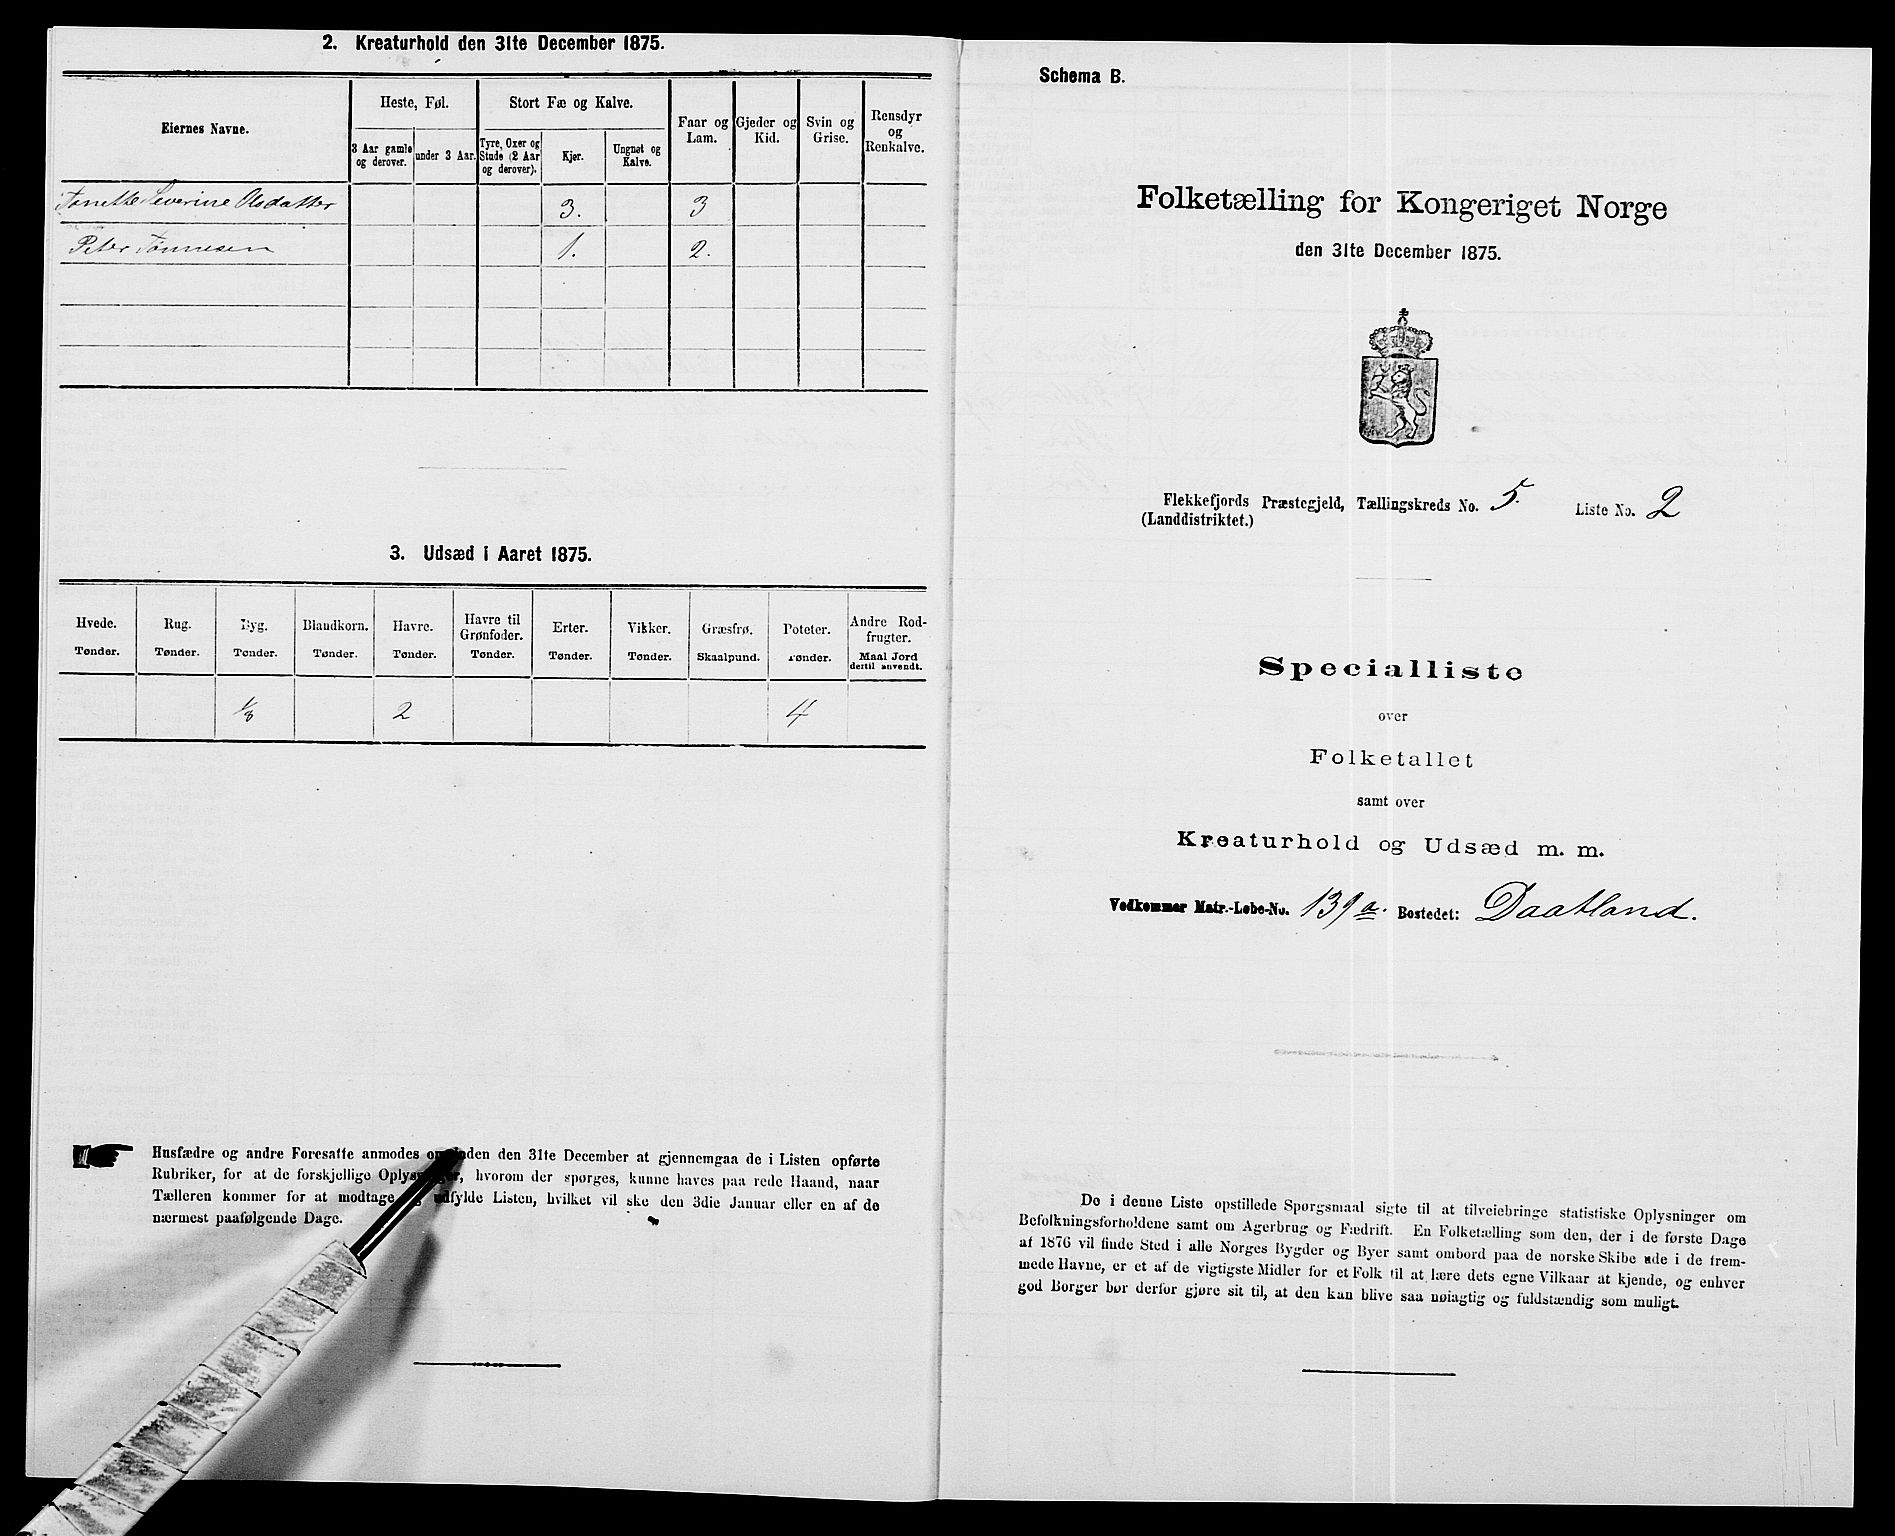 2. Kreaturhold den 31te December 1875.
Eiernes Navne.
Heste, Føl.
Stort Fæ og Kalve.
3 Aar gamle og derover.
under 3 Aar.
Tyre, Oxer og Stude (2 Aar og derover).
Kjør.
Ungnøt og Kalve.
Faar og Lam.
Gjeder og Kid.
Svin og Grise.
Rensdyr og Renkalve.
Tonette Severine Olsdatter 3. 3
Peter Tønnesen 1. 2.
3. Udsæd i Aaret 1875.
Hvede. Rug. Byg. Blandkorn. Havre. Havre til Grønfoder. Erter. Vikker. Græsfrø. Poteter. Andre Rodfrugter.
Tønder. Tønder. Tønder. Tønder. Tønder. Tønder. Tønder. Tønder. Skaalpund. Tønder. Maal Jord dertil anvendt.
1/8 2 4
Husfædre og andre Foresatte anmodes om inden den 31te December at gjennemgaa de i Listen opførte
Rubriker, for at de forskjellige Oplysninger, hvorom der spørges, kunne haves paa rede Haand, naar
Tælleren kommer for at modtage og udfylde Listen, hvilket vil ske den 3die Januar eller en af de
nærmest paafølgende Dage.
Schema B.
Folketælling for Kongeriget Norge
den 31te December 1875.
Flekkefjords Præstegjeld, Tællingskreds No. 5. Liste No. 2
(Landdistriktet.)
Specialliste
over
Folketallet
samt over
Kreaturhold og Udsæd m. m.
Vedkommer Matr.-Løbe-No. 139a. Bostedet: Daatland.
De i denne Liste opstillede Spørgsmaal sigte til at tilveiebringe statistiske Oplysninger om
Befolkningsforholdene samt om Agerbrug og Fædrift. En Folketælling som den, der i de første Dage
af 1876 vil finde Sted i alle Norges Bygder og Byer samt ombord paa de norske Skibe ude i de frem-
mede Havne, er et af de vigtigste Midler for et Folk til at lære dets egne Vilkaar at kjende, og enhver
god Borger bør derfor gjøre sit til, at den kan blive saa nøiagtig og fuldstændig som muligt.